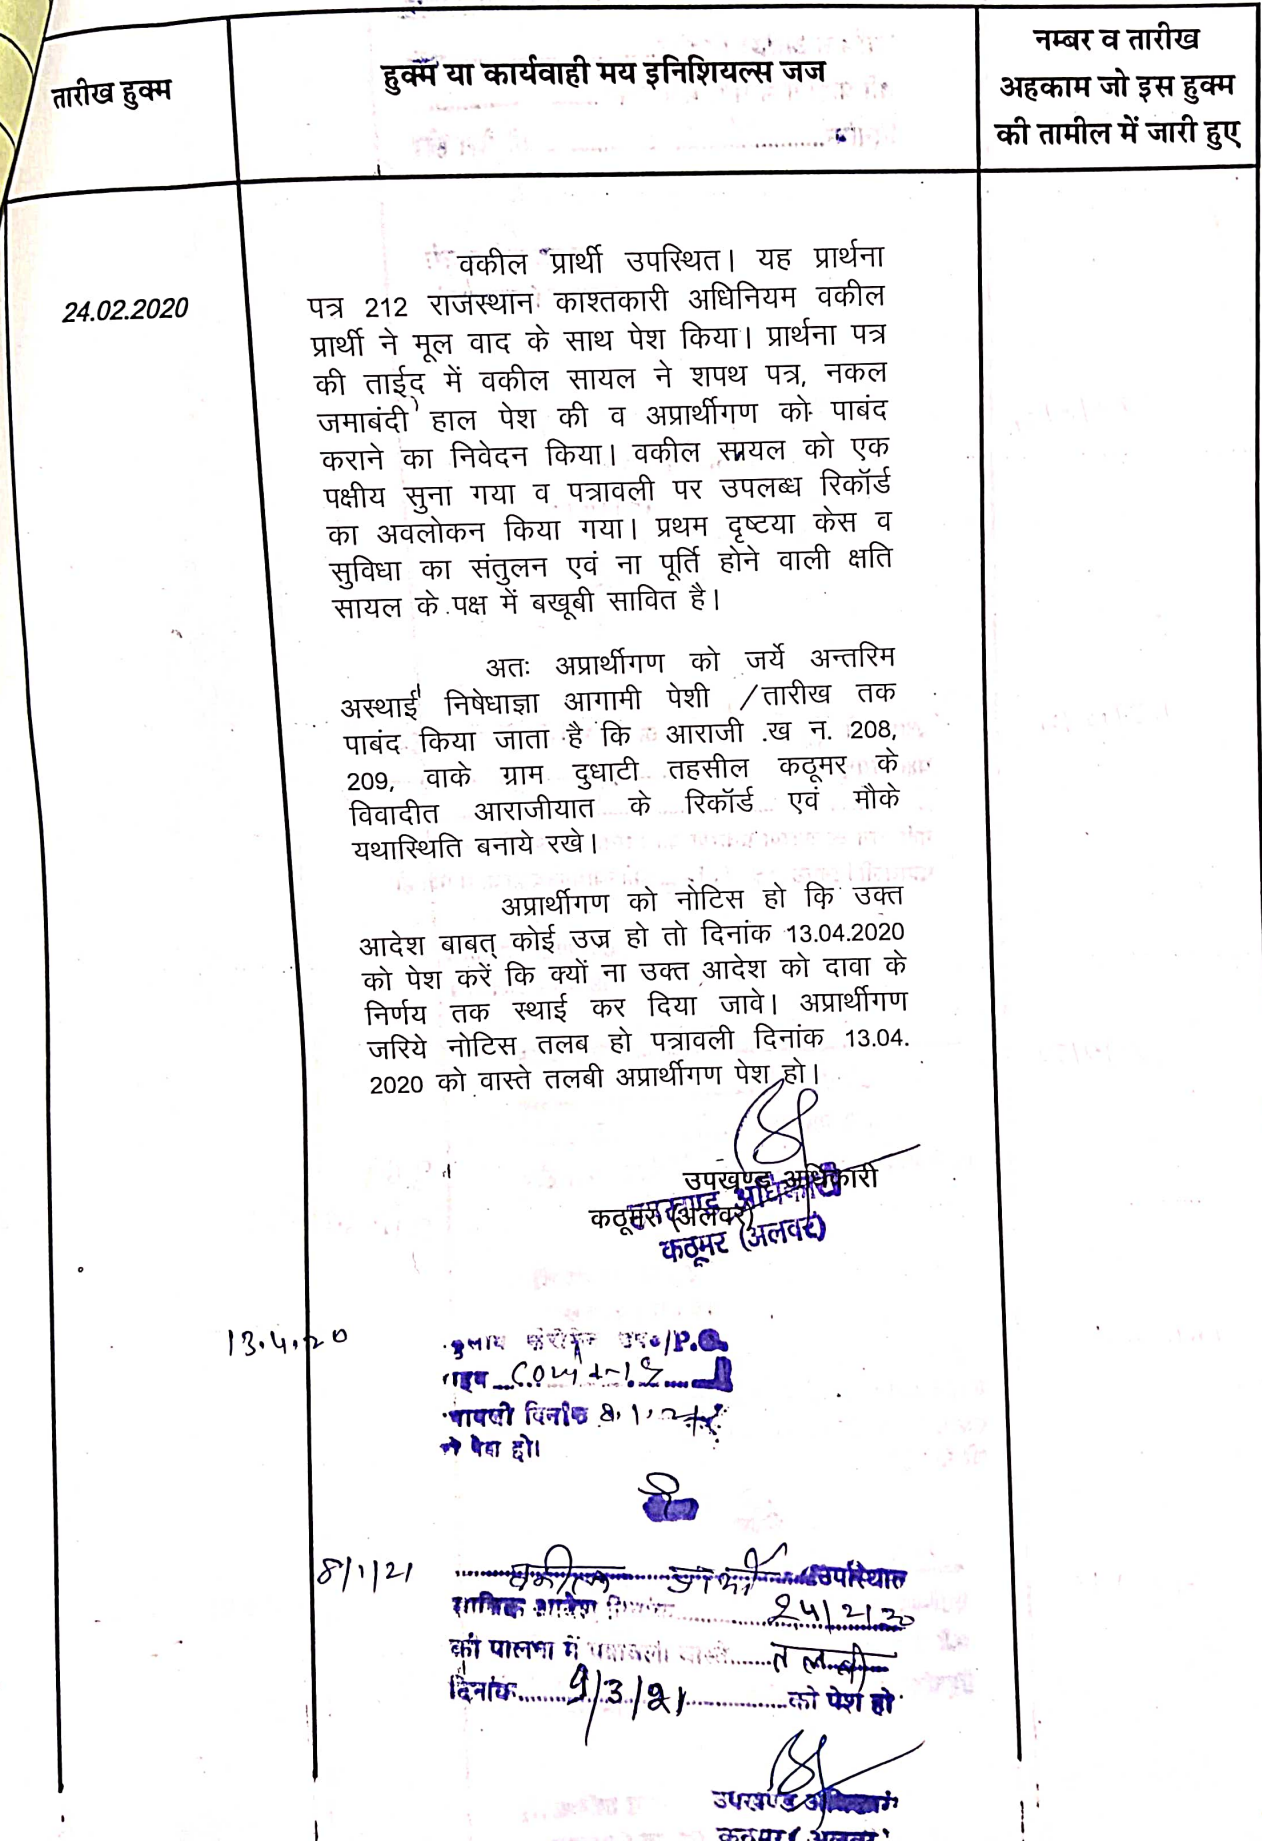 तारीख हुक्म
हुक्म या कार्यवाही मय इनिशियल्स जज
नम्बर व तारीख
अहकाम जो इस हुक्म
की तामील में जारी हुए
24.02.2020
वकील प्रार्थी उपस्थित। यह प्रार्थना
पत्र 212 राजस्थान काश्तकारी अधिनियम वकील
प्रार्थी ने मूल वाद के साथ पेश किया। प्रार्थना पत्र
की ताईद में वकील सायल ने शपथ पत्र, नकल
जमाबंदी हाल पेश की व अप्रार्थीगण को पाबंद
कराने का निवेदन किया। वकील सायल को एक
पक्षीय सुना गया व पत्रावली पर उपलब्ध रिकॉर्ड
का अवलोकन किया गया। प्रथम दृष्टया केस व
सुविधा का संतुलन एवं ना पूर्ति होने वाली क्षति
सायल के पक्ष में बखूबी सावित है।
अतः अप्रार्थीगण को जर्ये अन्तरिम
अस्थाई निषेधाज्ञा आगामी पेशी /तारीख तक
पाबंद किया जाता है कि आराजी ख न. 208,
209, वाके ग्राम दुधाटी तहसील कठूमर के
विवादीत आराजीयात के रिकॉर्ड एवं मौके
यथास्थिति बनाये रखे।
अप्रार्थीगण को नोटिस हो कि उक्त
आदेश बाबत् कोई उज्र हो तो दिनांक 13.04.2020
को पेश करें कि क्यों ना उक्त आदेश को दावा के
निर्णय तक स्थाई कर दिया जावे। अप्रार्थीगण
जरिये नोटिस तलब हो पत्रावली दिनांक 13.04.
2020 को वास्ते तलबी अप्रार्थीगण पेश हो।
उपखण्ड अधिकारी
कठूमर (अलवर)
उपखण्ड अधिकारी
कठूमर (अलवर)
13.4.20
/P.O.
दिनांक 8.1.21
पेश हो।
8/1/21
वकील प्रार्थी उपस्थित
आदेश 24/2/20
की पालना में पत्रावली वास्ते तलबी
दिनांक 9/3/21 को पेश हो
उपखण्ड अधिकारी
कठूमर (अलवर)